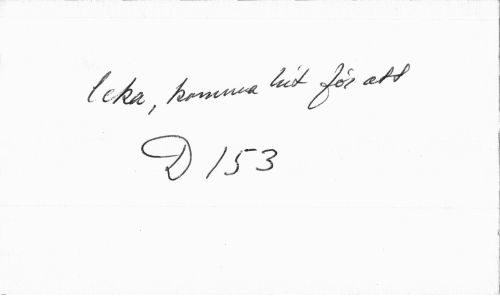 leka, komma hit för att
D 153